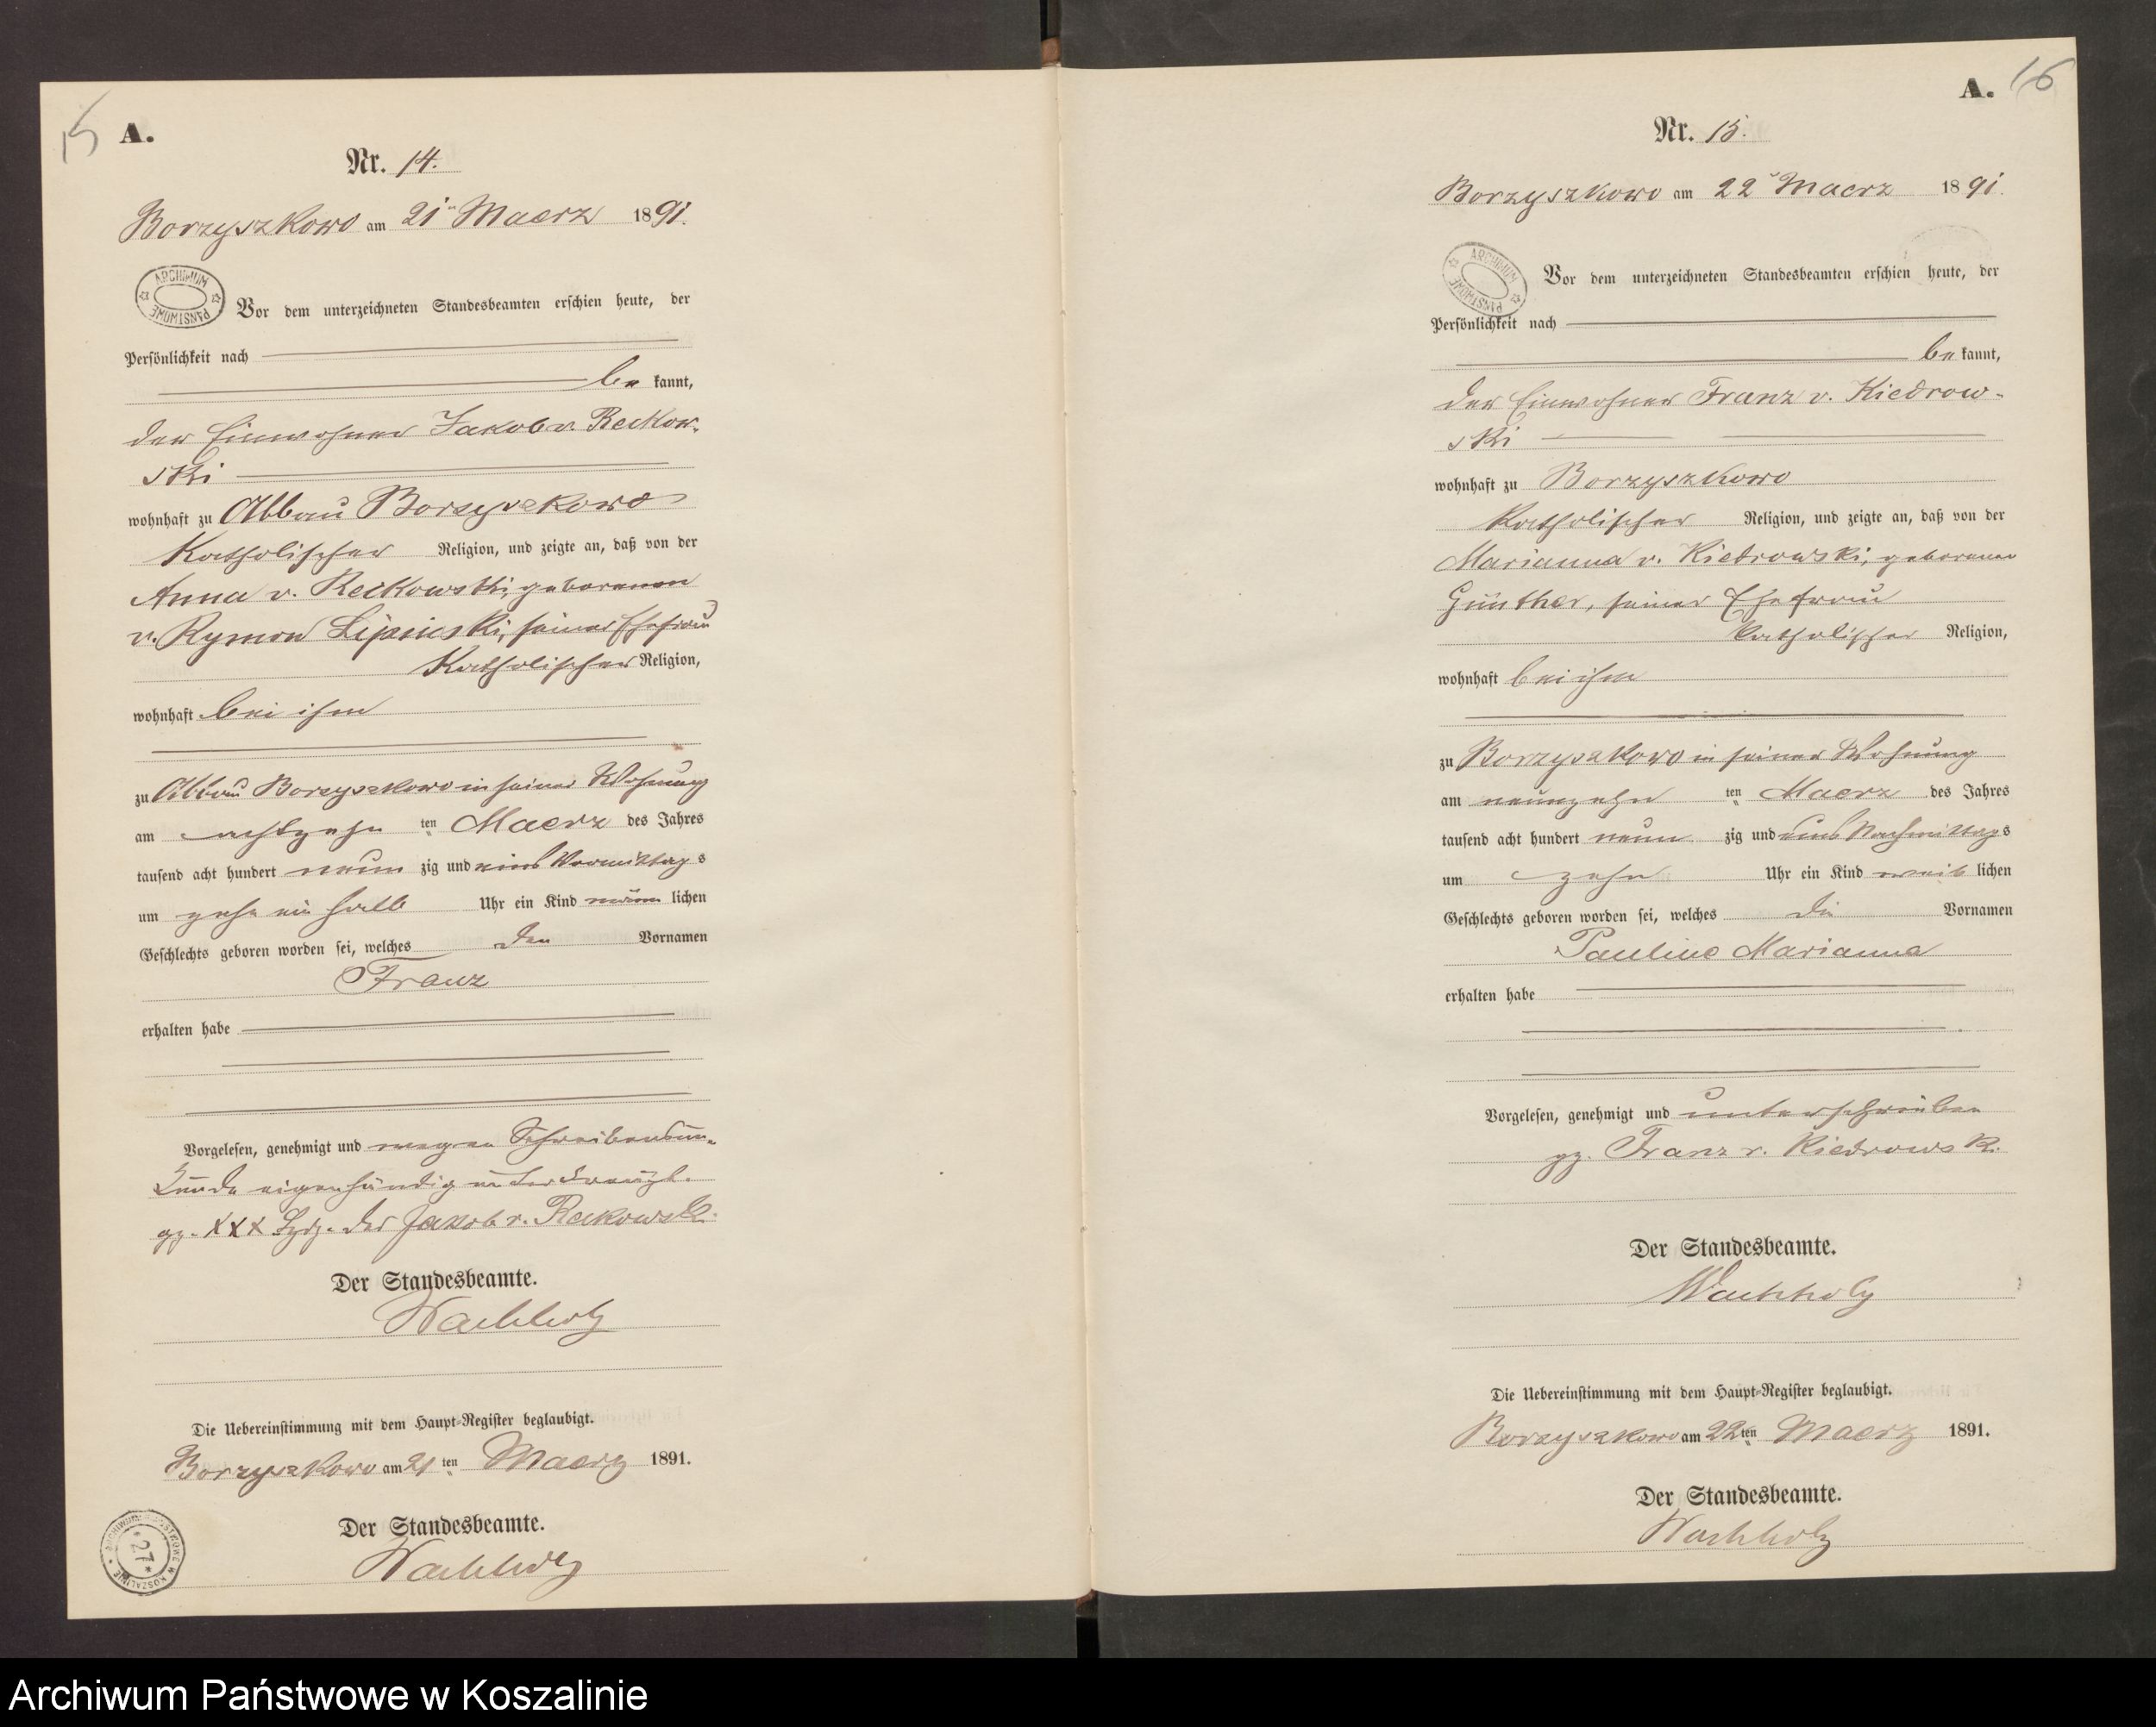 15
A.
Nr. 14.
Borzyszkowo am 21ten Maerz 1891.
ARCHIWUM PAŃSTWOWE
Vor dem unterzeichneten Standesbeamten erschien heute, der
Persönlichkeit nach
be kannt,
der Einwohner Jakob v. Reckow-
ski
wohnhaft zu Abbau Borzyszkowo
Katholischer Religion, und zeigte an, daß von der
Anna v. Reckowski, geborenen
v. Rymon Lipinski, seiner Ehefrau
Katholischer Religion,
wohnhaft bei ihm
zu Abbau Borzyszkowo in seiner Wohnung
am achtzehn ten Maerz des Jahres
tausend acht hundert neun zig und eins Vormittag s
um zehn ein halb Uhr ein Kind männ lichen
Geschlechts geboren worden sei, welches den Vornamen
Franz
erhalten habe
Vorgelesen, genehmigt und wegen Schreibensun-
kunde eigenhändig unterkreuzt.
gz. XXX Hdz. des Jakob v. Reckowski.
Der Standesbeamte.
Wachholz
Die Uebereinstimmung mit dem Haupt-Register beglaubigt.
Borzyszkowo am 21 ten Maerz 1891.
Der Standesbeamte.
Wachholz
ARCHIWUM PAŃSTWOWE W KOSZALINIE
27
16
A.
Nr. 15.
Borzyszkowo am 22ten Maerz 1891.
ARCHIWUM PAŃSTWOWE
Vor dem unterzeichneten Standesbeamten erschien heute, der
Persönlichkeit nach
be kannt,
der Einwohner Franz v. Kiedrow-
ski
wohnhaft zu Borzyszkowo
Katholischer Religion, und zeigte an, daß von der
Marianna v. Kiedrowski, geborenen
Günther, seiner Ehefrau
katholischer Religion,
wohnhaft bei ihm
zu Borzyszkowo in seiner Wohnung
am neunzehn ten Maerz des Jahres
tausend acht hundert neun zig und eins Nachmittag s
um zehn Uhr ein Kind weib lichen
Geschlechts geboren worden sei, welches die Vornamen
Pauline Marianna
erhalten habe
Vorgelesen, genehmigt und unterschrieben
gz. Franz v. Kiedrowski.
Der Standesbeamte.
Wachholz
Die Uebereinstimmung mit dem Haupt-Register beglaubigt.
Borzyszkowo am 22ten Maerz 1891.
Der Standesbeamte.
Wachholz
Archiwum Państwowe w Koszalinie